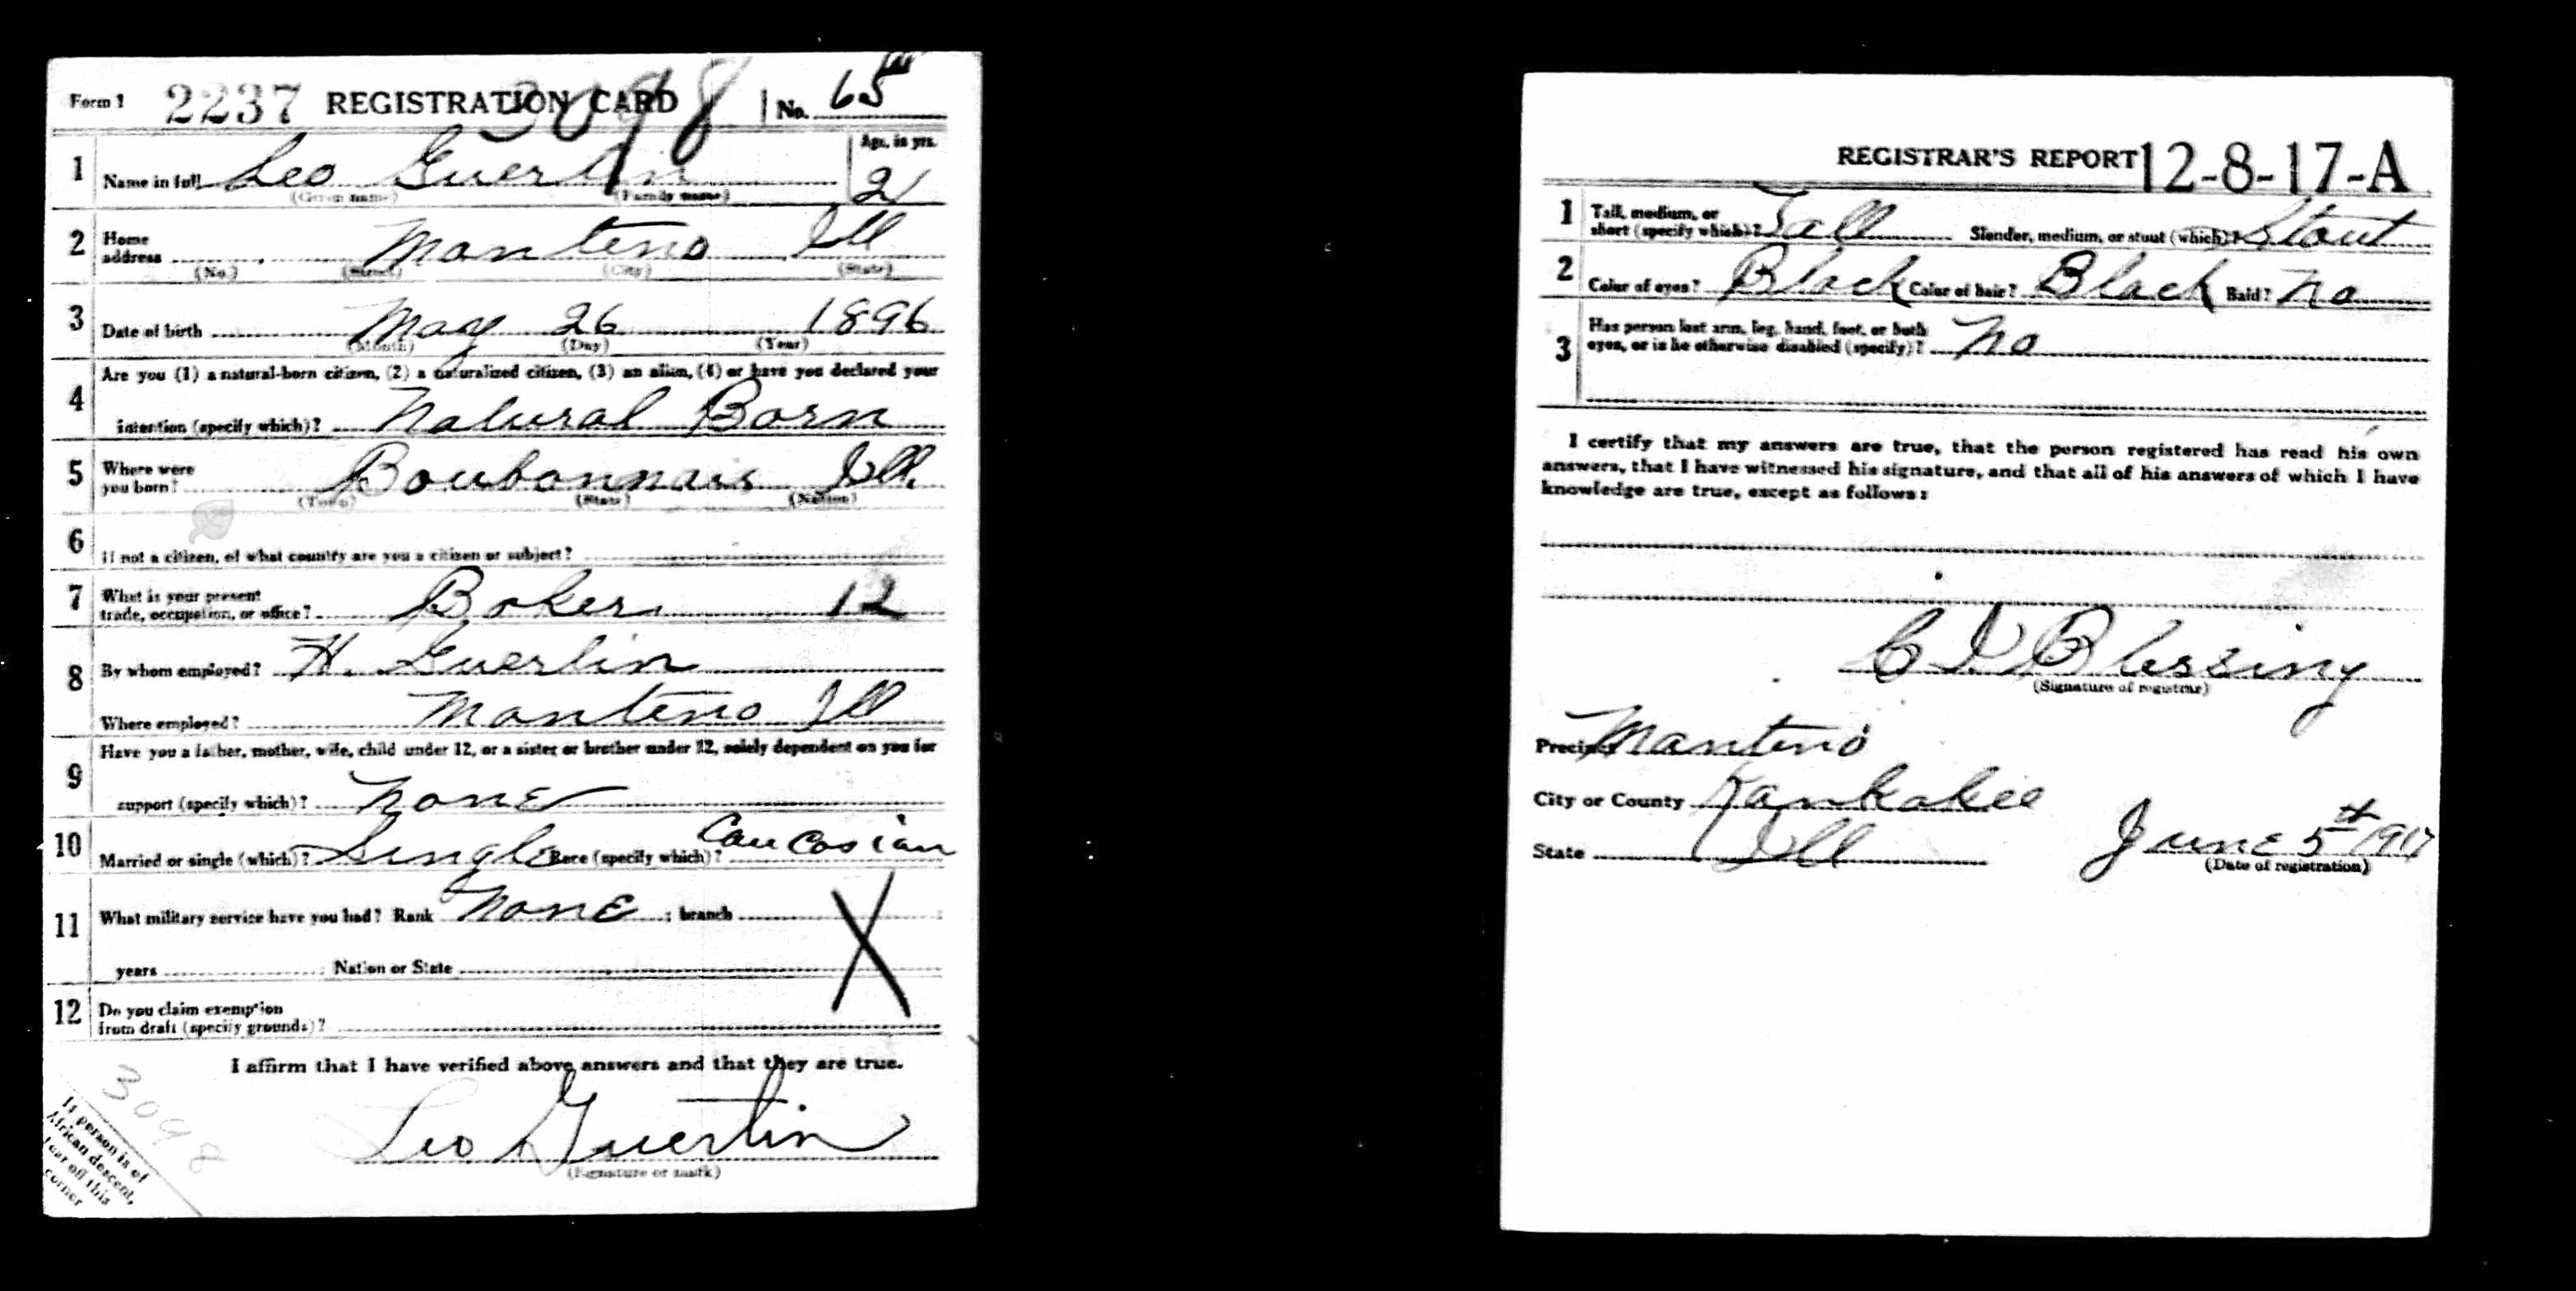 Form 1 2237 REGISTRATION CARD 3098 No. 65
1 Name in full Leo Guertin Age, in yrs. 21
(Given name) (Family name)
2 Home address Manteno Ill
(No.) (Street) (City) (State)
3 Date of birth May 26 1896
(Month) (Day) (Year)
4 Are you (1) a natural-born citizen, (2) a naturalized citizen, (3) an alien, (4) or have you declared your
intention (specify which)? Natural Born
5 Where were you born? Boubonnais Ill.
(Town) (State) (Nation)
6 If not a citizen, of what country are you a citizen or subject?
7 What is your present trade, occupation, or office? Baker 12
8 By whom employed? H. Guertin
Where employed? Manteno Ill
9 Have you a father, mother, wife, child under 12, or a sister or brother under 12, solely dependent on you for
support (specify which)? None
10 Married or single (which)? Single Race (specify which)? Caucasian
11 What military service have you had? Rank None ; branch
years Nation or State
X
12 Do you claim exemption
from draft (specify grounds)?
I affirm that I have verified above answers and that they are true.
Leo Guertin
(Signature or mark)
3098
If person is of
African descent,
tear off this
corner
REGISTRAR'S REPORT 12-8-17-A
1 Tall, medium, or
short (specify which)? Tall Slender, medium, or stout (which)? Stout
2 Color of eyes? Black Color of hair? Black Bald? No
3 Has person lost arm, leg, hand, foot, or both
eyes, or is he otherwise disabled (specify)? No
I certify that my answers are true, that the person registered has read his own
answers, that I have witnessed his signature, and that all of his answers of which I have
knowledge are true, except as follows:
C D Blessing
(Signature of registrar)
Precinct Manteno
City or County Kankakee
State Ill June 5th 1917
(Date of registration)